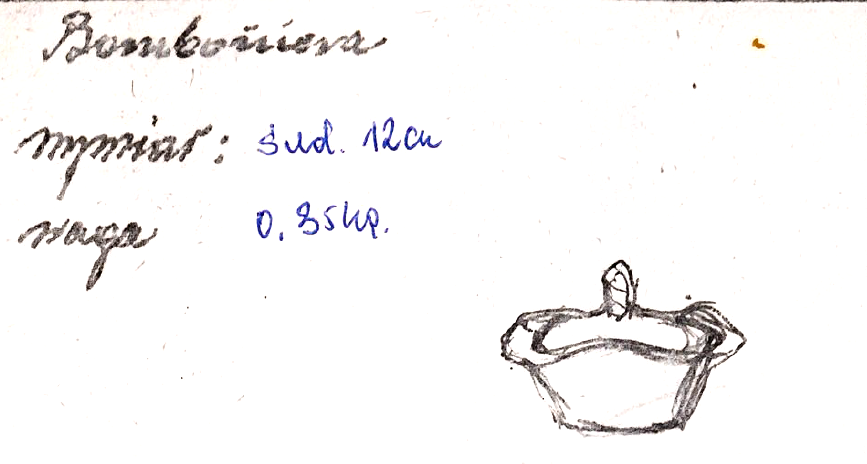 Bomboniera
wymiar: śred. 12cm
waga 0.35kg.